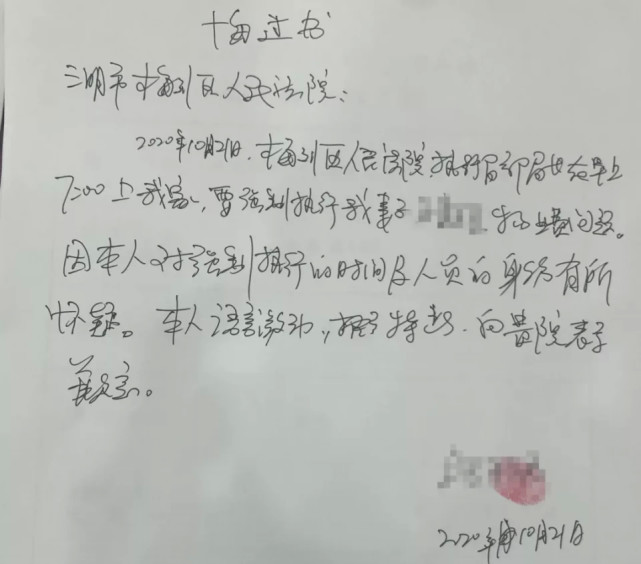 悔过书
三明市梅列区人民法院：
2020年10月21日，梅列区人民法院执行局邱局长在早上
7:00上我家，要强制执行我妻子 物业费问题。
因本人对强制执行的时间及人员的身份有所
怀疑。本人语言激动，向贵院表示
歉意。
2020年10月21日